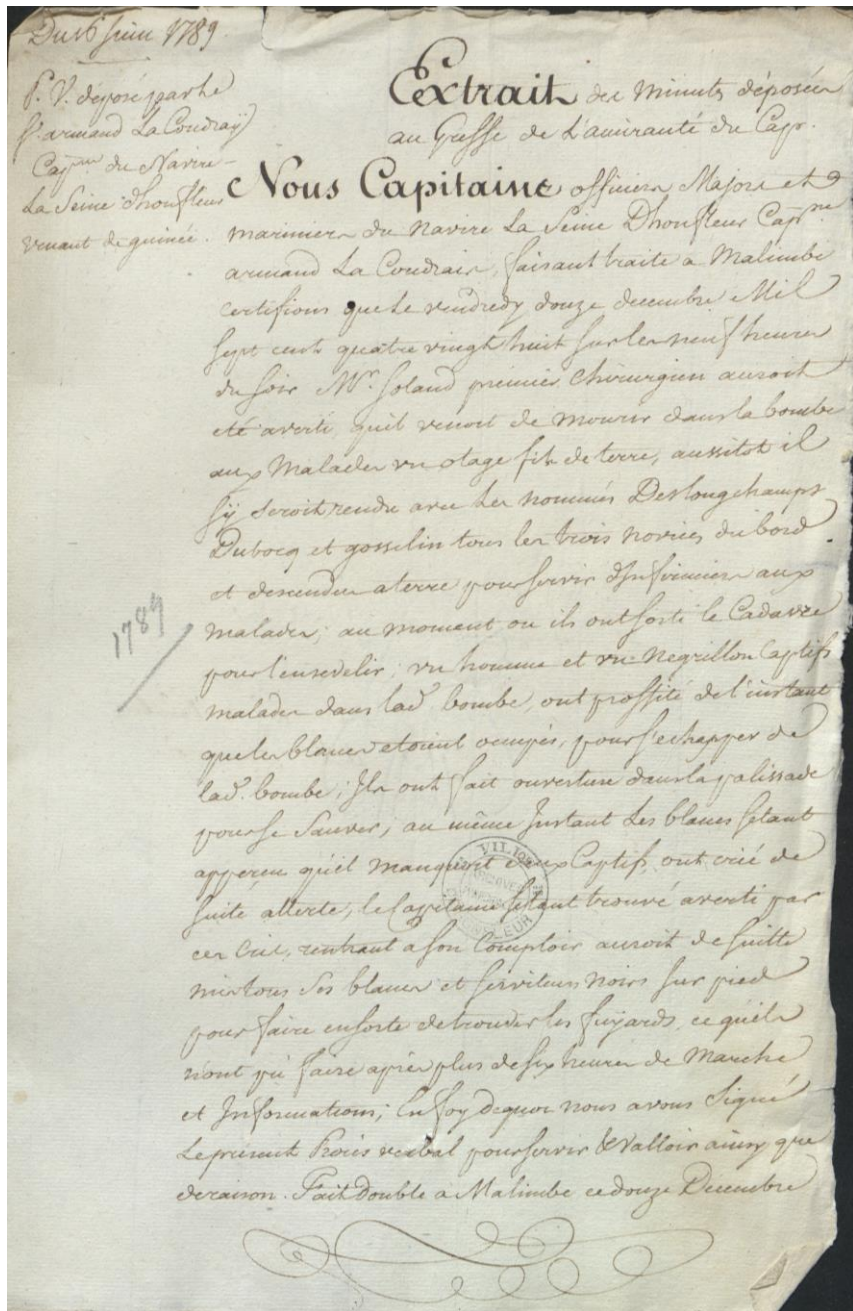 Du 16 Juin 1789.
P. V. déposé par le
Sr. armand La Coudraÿ
Capne du Navire
La Seine d'honfleur
venant de guinée.
Extrait des Minutes déposées
au Greffe de L'amirauté du Cap.
Nous Capitaine officiers Majors et
mariniers du Navire La Seine D'honfleur Capne
armand La Coudrais, faisant traite a Malimbe
certifions que Le vendredy douze decembre Mil
sept cent quatre vingt huit sur les neuf heures
du soir Mr. Soland premier Chirurgien auroit
été averti quil venoit de mourir dans la bombe
aux Malades un otage fils de terre, aussitot il
sÿ seroit rendu avec Les nommés Deslongchamps
Dubocq et gosselin tous les trois novices du bord
et descendus a terre pour servir d'Infirmiers aux
malades; au moment ou ils ont sorti le Cadavre
pour l'ensevelir, un homme et un Negrillon Captifs
malades dans lad. bombe, ont proffité de l'instant
que les blancs etoient ocupés, pour s'echapper de
lad. bombe; Ils ont fait ouverture dans la palissade
pour se Sauver, au même Instant Les blancs s'etant
apperçu qu'il manquoit deux Captifs, ont crié de
suite allerte, le Capitaine s'etant trouvé averti par
ces Cris, rentrant a son Comptoir auroit de suitte
mis tous Ses blancs et serviteurs noirs sur pied
pour faire ensorte de trouver les fuyards, ce quils
n'ont pû faire après plus de six heures de Marche
et Informations; En foy de quoi nous avons Signé
Le présent Procès verbal pour servir & Valloir ainsy que
de raison. Fait Double a Malimbe ce douze Decembre
1789